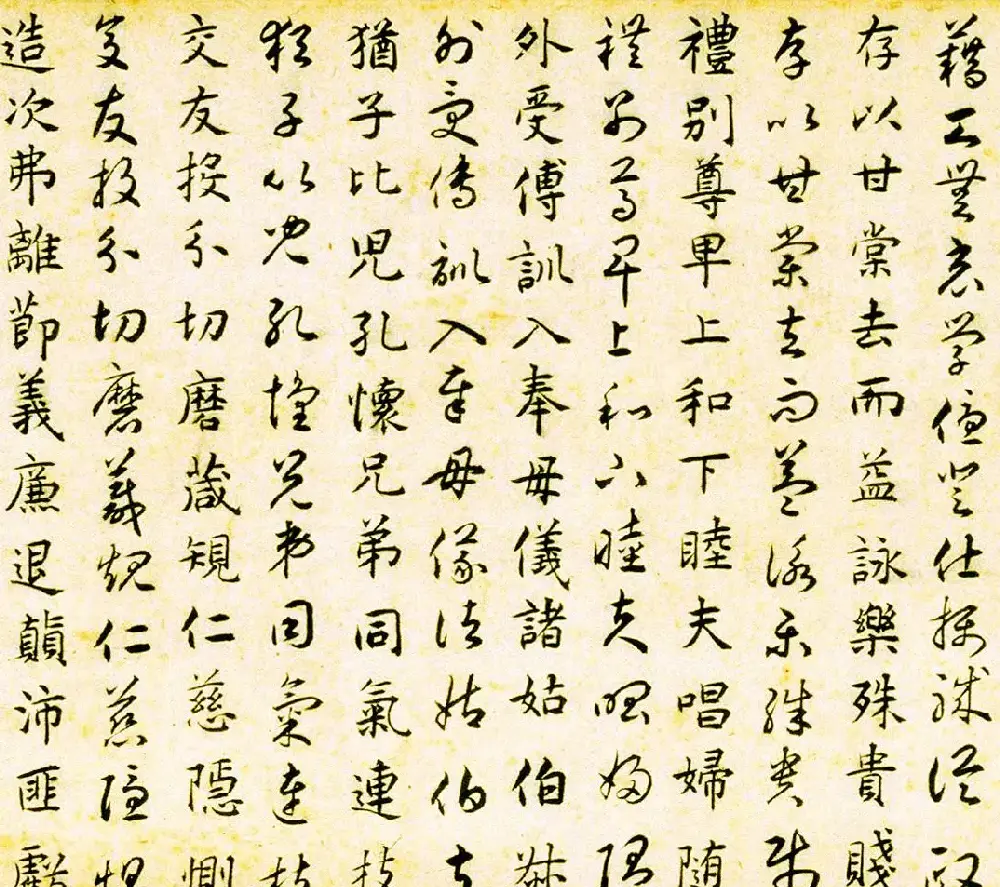 藉甚無竟學優登仕攝職從政
存以甘棠去而益詠樂殊貴賤
存以甘棠去而益詠樂殊貴賤
禮別尊卑上和下睦夫唱婦随
禮別尊卑上和下睦夫唱婦随
外受傅訓入奉母儀諸姑伯叔
外受傅訓入奉母儀諸姑伯叔
猶子比兒孔懷兄弟同氣連枝
猶子比兒孔懷兄弟同氣連枝
交友投分切磨箴規仁慈隱惻
交友投分切磨箴規仁慈隱惻
造次弗離節義廉退顛沛匪虧